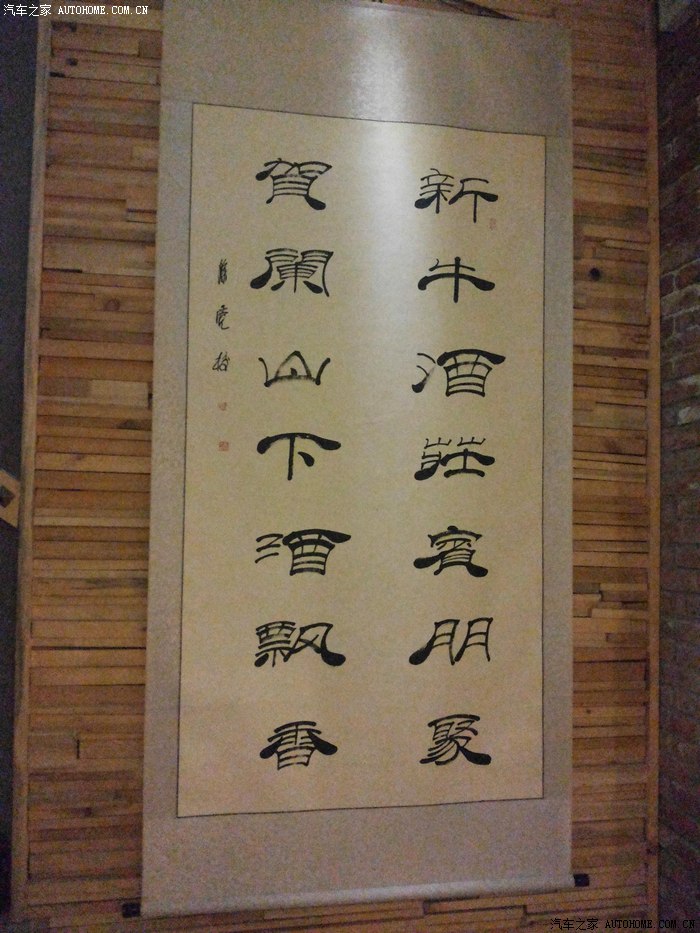 汽车之家 AUTOHOME.COM.CN
新牛酒莊賓朋聚
賀闌山下酒飄香
汽车之家 AUTOHOME.COM.CN